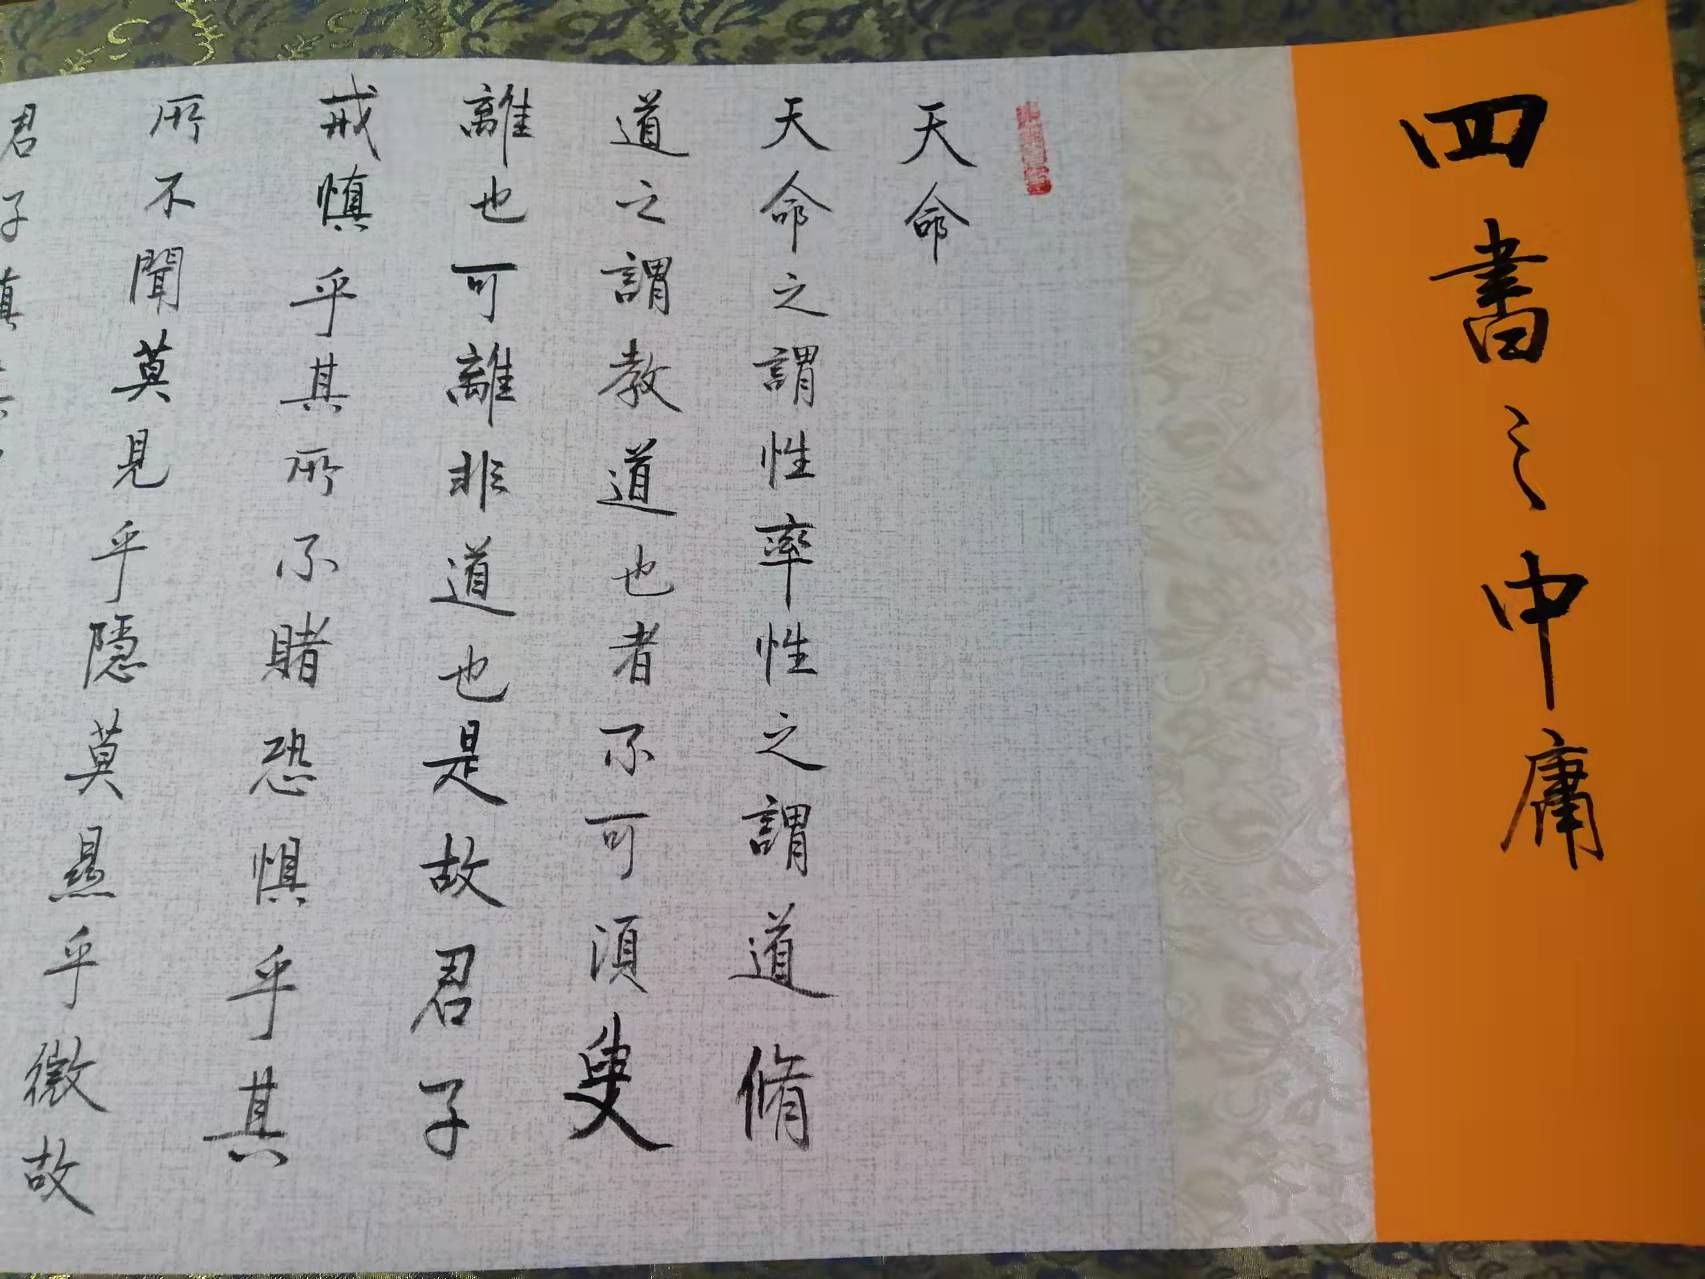 四書之中庸
天命
天命之謂性率性之謂道脩
道之謂教道也者不可須臾
離也可離非道也是故君子
戒慎乎其所不睹恐惧乎其
所不聞莫見乎隱莫顯乎微故
君子慎其